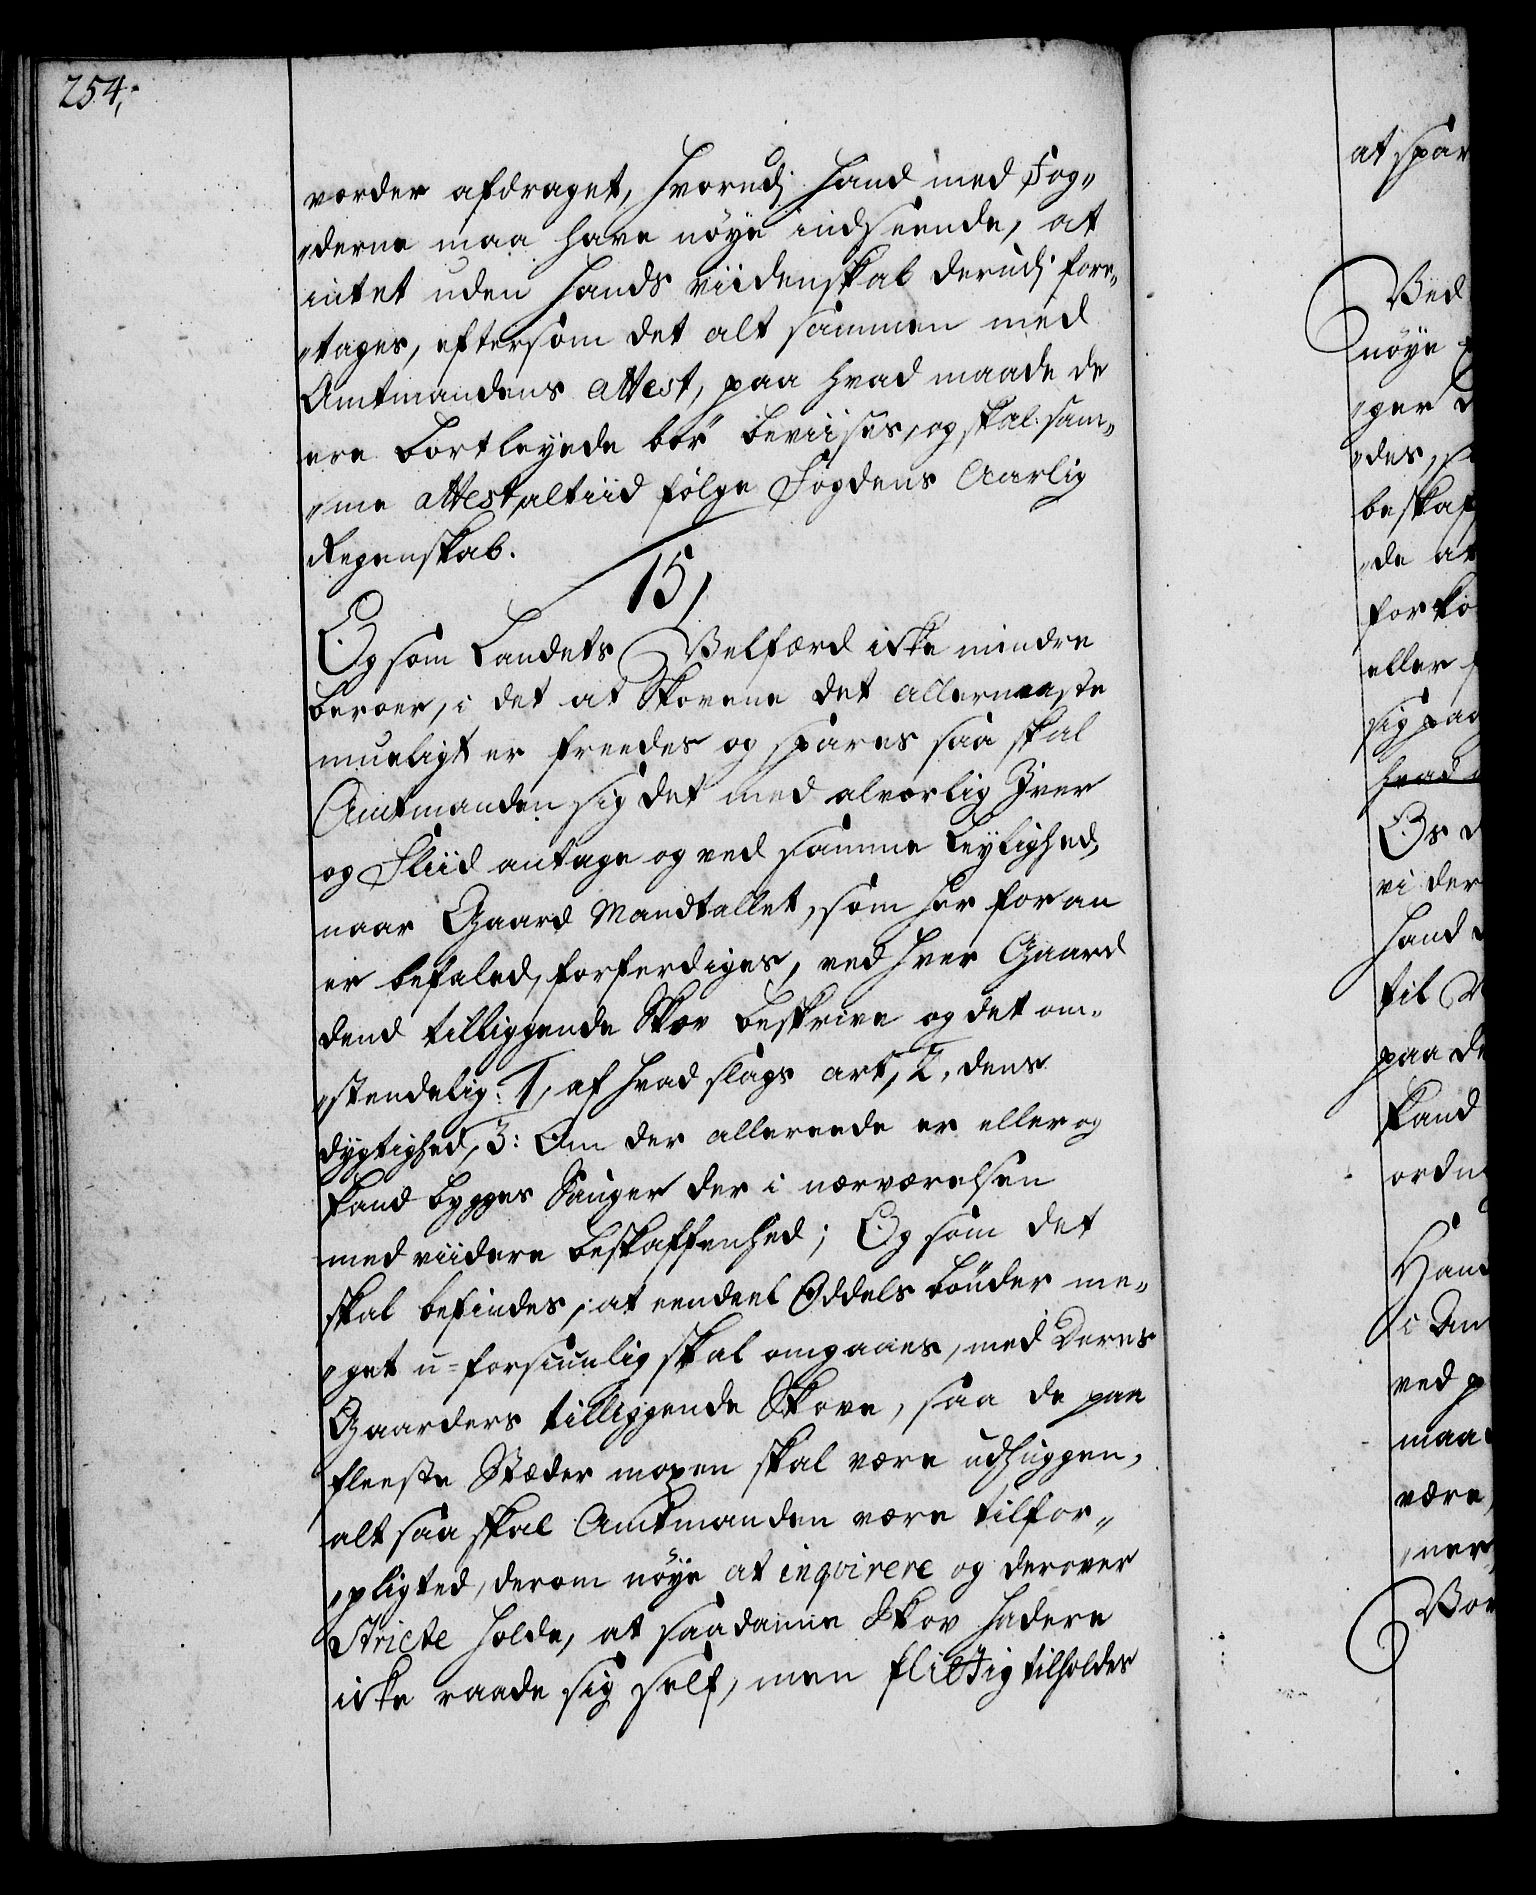 254,
vorder afdraget, hvorudj hand med Fog„
„derne maa have nöye indseende, at
intet uden hands viidenskab derudj fore„
„tages, eftersom det alt sammen med
Amtmandens attest, paa hvad maade de
ere bortleyede bör beviises, og skal sam„
„me attest altiid følge Fogdens Aarlig
Regenskab.
15,
Og som Landets Velfærd icke mindre
beroer, i det at Skovene det allermeeste
mueligt er freedes og spares saa skal
Amtmanden sig det med alvorlig Iver
og Fliid antage og ved samme Leylighed,
naar Gaard Mandtallet, som her foran
er befaled, forferdiges, ved hver Gaard
dend tilliggende Skov beskrive og det om„
„stendelig: 1, af hvad slags art, 2, dens
dygtighed, 3: Om der allereede er eller og
kand bygges Sauger der i nærværelsen
med viidere beskaffenhed; Og som det
skal befindes, at eendeel Oddels bönder me„
„get u-forsiunlig skal omgaaes, med Deres
Gaarders tilliggende Skove, saa de paa
fleeste Stæder mogen skal være udhuggen,
alt saa skal Amtmanden være tilfor„
„pligted, derom nöye at inqvirere og derover
Stricte holde, at saadanne Skov hadere
icke raade sig self, men flittig tilholdes
at spar
Ved
nöye
„ger
„des,
beskaf
„de at
forko
eller
sig paa
hvad
Os
vi der
hand
til
paa de
kand
ordn
Hand
i Am
ved
maa
være,
„ner
Vor